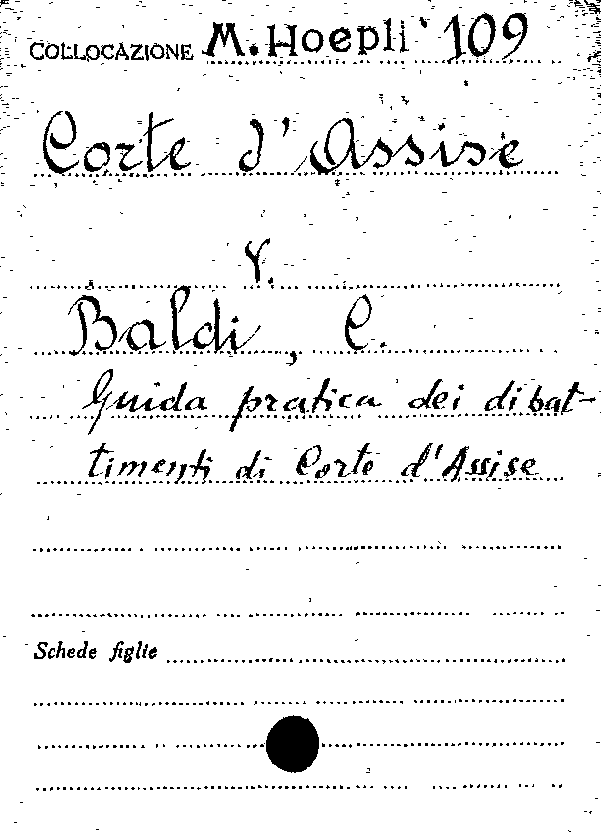 COLLOCAZIONE M. Hoepli 109
Corte d'Assise
v.
Baldi, C.
Guida pratica dei dibat-
timenti di Corte d'Assise
Schede figlie